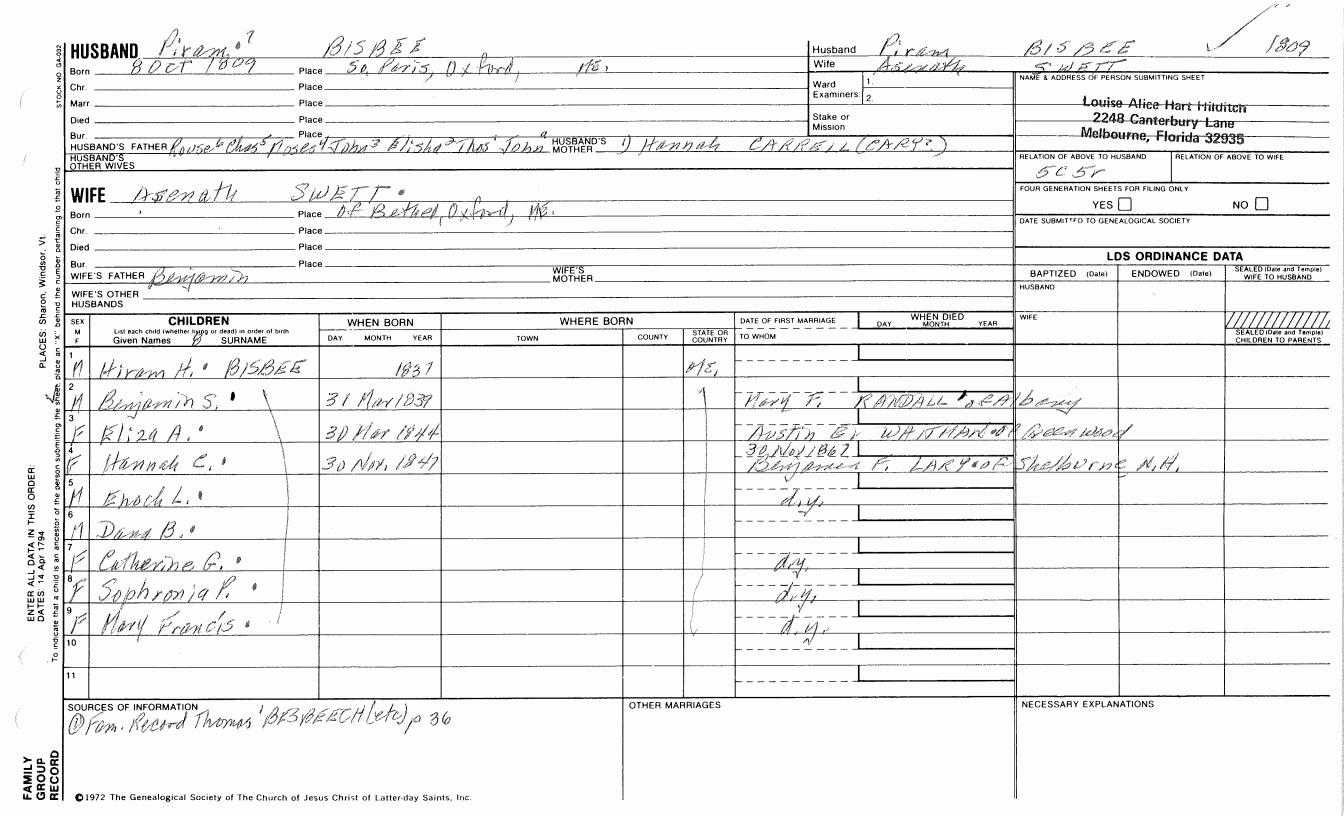 HUSBAND Piram 7 BISBEE
Born 8 Oct 1809 Place So. Paris, Oxford, Me.
Chr. Place
Marr Place
Died Place
Bur. Place
HUSBAND'S FATHER Rouse 6 Chas 5 Moses 4 John 3 Elisha 2 Thos 1 John a HUSBAND'S MOTHER 1) Hannah CARRELL (CARY?)
HUSBAND'S OTHER WIVES
Husband Piram BISBEE 1809
Wife Asenath SWETT
Ward Examiners: 1. 2.
Stake or Mission
NAME & ADDRESS OF PERSON SUBMITTING SHEET
Louise Alice Hart Hilditch
2248 Canterbury Lane
Melbourne, Florida 32935
RELATION OF ABOVE TO HUSBAND RELATION OF ABOVE TO WIFE
5C5r
FOUR GENERATION SHEETS FOR FILING ONLY
YES NO
DATE SUBMITTED TO GENEALOGICAL SOCIETY
WIFE Asenath SWETT
Born Place Of Bethel, Oxford, Me.
Chr. Place
Died Place
Bur. Place
WIFE'S FATHER Benjamin WIFE'S MOTHER
WIFE'S OTHER HUSBANDS
LDS ORDINANCE DATA
BAPTIZED (Date) ENDOWED (Date) SEALED (Date and Temple) WIFE TO HUSBAND
HUSBAND
WIFE
SEALED (Date and Temple) CHILDREN TO PARENTS
SEX M F
CHILDREN
List each child (whether living or dead) in order of birth
Given Names SURNAME
WHEN BORN
DAY MONTH YEAR
WHERE BORN
TOWN COUNTY STATE OR COUNTRY
DATE OF FIRST MARRIAGE
TO WHOM
WHEN DIED
DAY MONTH YEAR
1 M Hiram H. BISBEE 1837 Me.
2 M Benjamin S. 31 Mar 1839 Mary F. RANDALL of Albany
3 F Eliza A. 30 Mar 1844 Austin E. of Greenwood
4 F Hannah C. 30 Nov. 1847 30 Nov 1867 Benjamin F. LARY of Shelburne N.H.
5 M Enoch L. d.y.
6 M Dana B.
7 F Catherine G. d.y.
8 F Sophronia P. d.y.
9 F Mary Francis d.y.
10
11
SOURCES OF INFORMATION
① Fam. Record Thomas BESBEECH (etc) p 36
OTHER MARRIAGES
NECESSARY EXPLANATIONS
©1972 The Genealogical Society of The Church of Jesus Christ of Latter-day Saints, Inc.
STOCK NO. GA-032
PLACES: Sharon, Windsor, Vt.
To indicate that a child is an ancestor of the person submitting the sheet, place an "X" behind the number pertaining to that child
ENTER ALL DATA IN THIS ORDER:
DATES: 14 Apr 1794
FAMILY GROUP RECORD